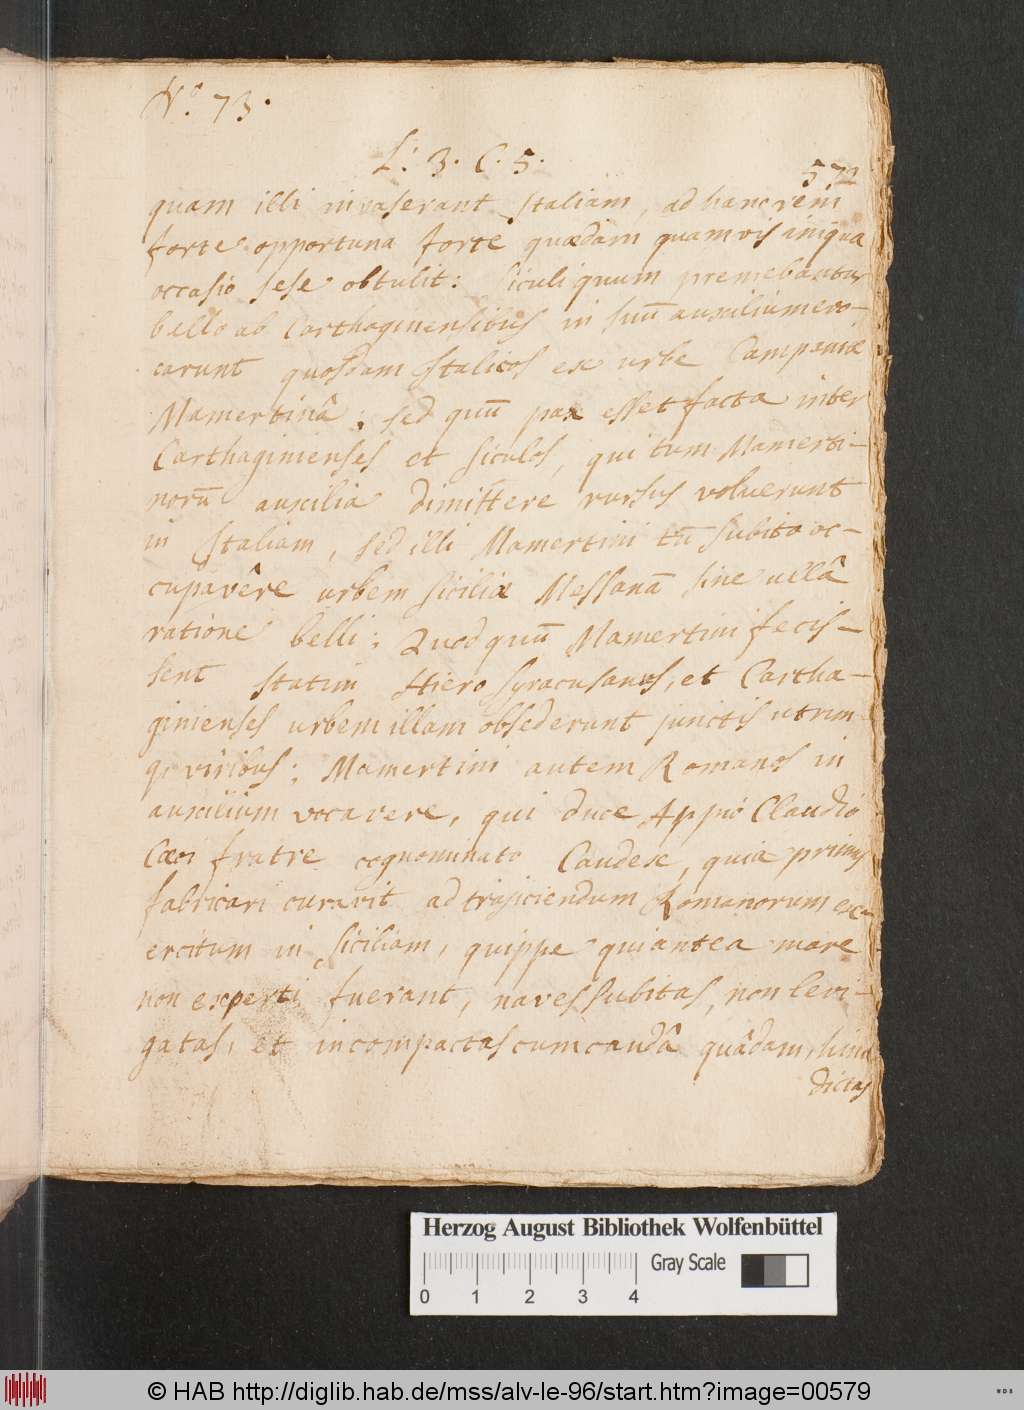 N.º 73.
L: 3. C. 5.
572
quam illi invaserant Italiam, ad hanc rem
forte opportuna forte quædam quamvis iniqua
occasio sese obtulit: Siculi quum premebantur
bello ab Carthaginensibus in suū auxilium evo-
carunt quosdam Italicos ex urbe Campaniæ
Mamertinâ; sed quū pax esset facta inter
Carthaginienses et Siculos, qui tum Mamerti-
norū auxilia dimittere rursus voluerunt
in Italiam, sed illi Mamertini tū subito oc-
cupavêre urbem Siciliæ Messanā sine ullâ
ratione belli; Quod quū Mamertini fecis-
sent statim Hiero Syracusanus, et Cartha-
ginienses urbem illam obsederunt junctis utrim-
q; viribus; Mamertini autem Romanos in
auxilium vocavere, qui duce Appio Claudio
Cæci fratre cognominato Caudex, quia primus
fabricari curavit ad trajiciendum Romanorum ex-
ercitum in Siciliam, quippe qui antea mare
non experti fuerant, naves subitas, non levi-
gatas, et incompactas cum caudâ quâdam, hinc
dictas
Herzog August Bibliothek Wolfenbüttel
Gray Scale
0 1 2 3 4
© HAB http://diglib.hab.de/mss/alv-le-96/start.htm?image=00579